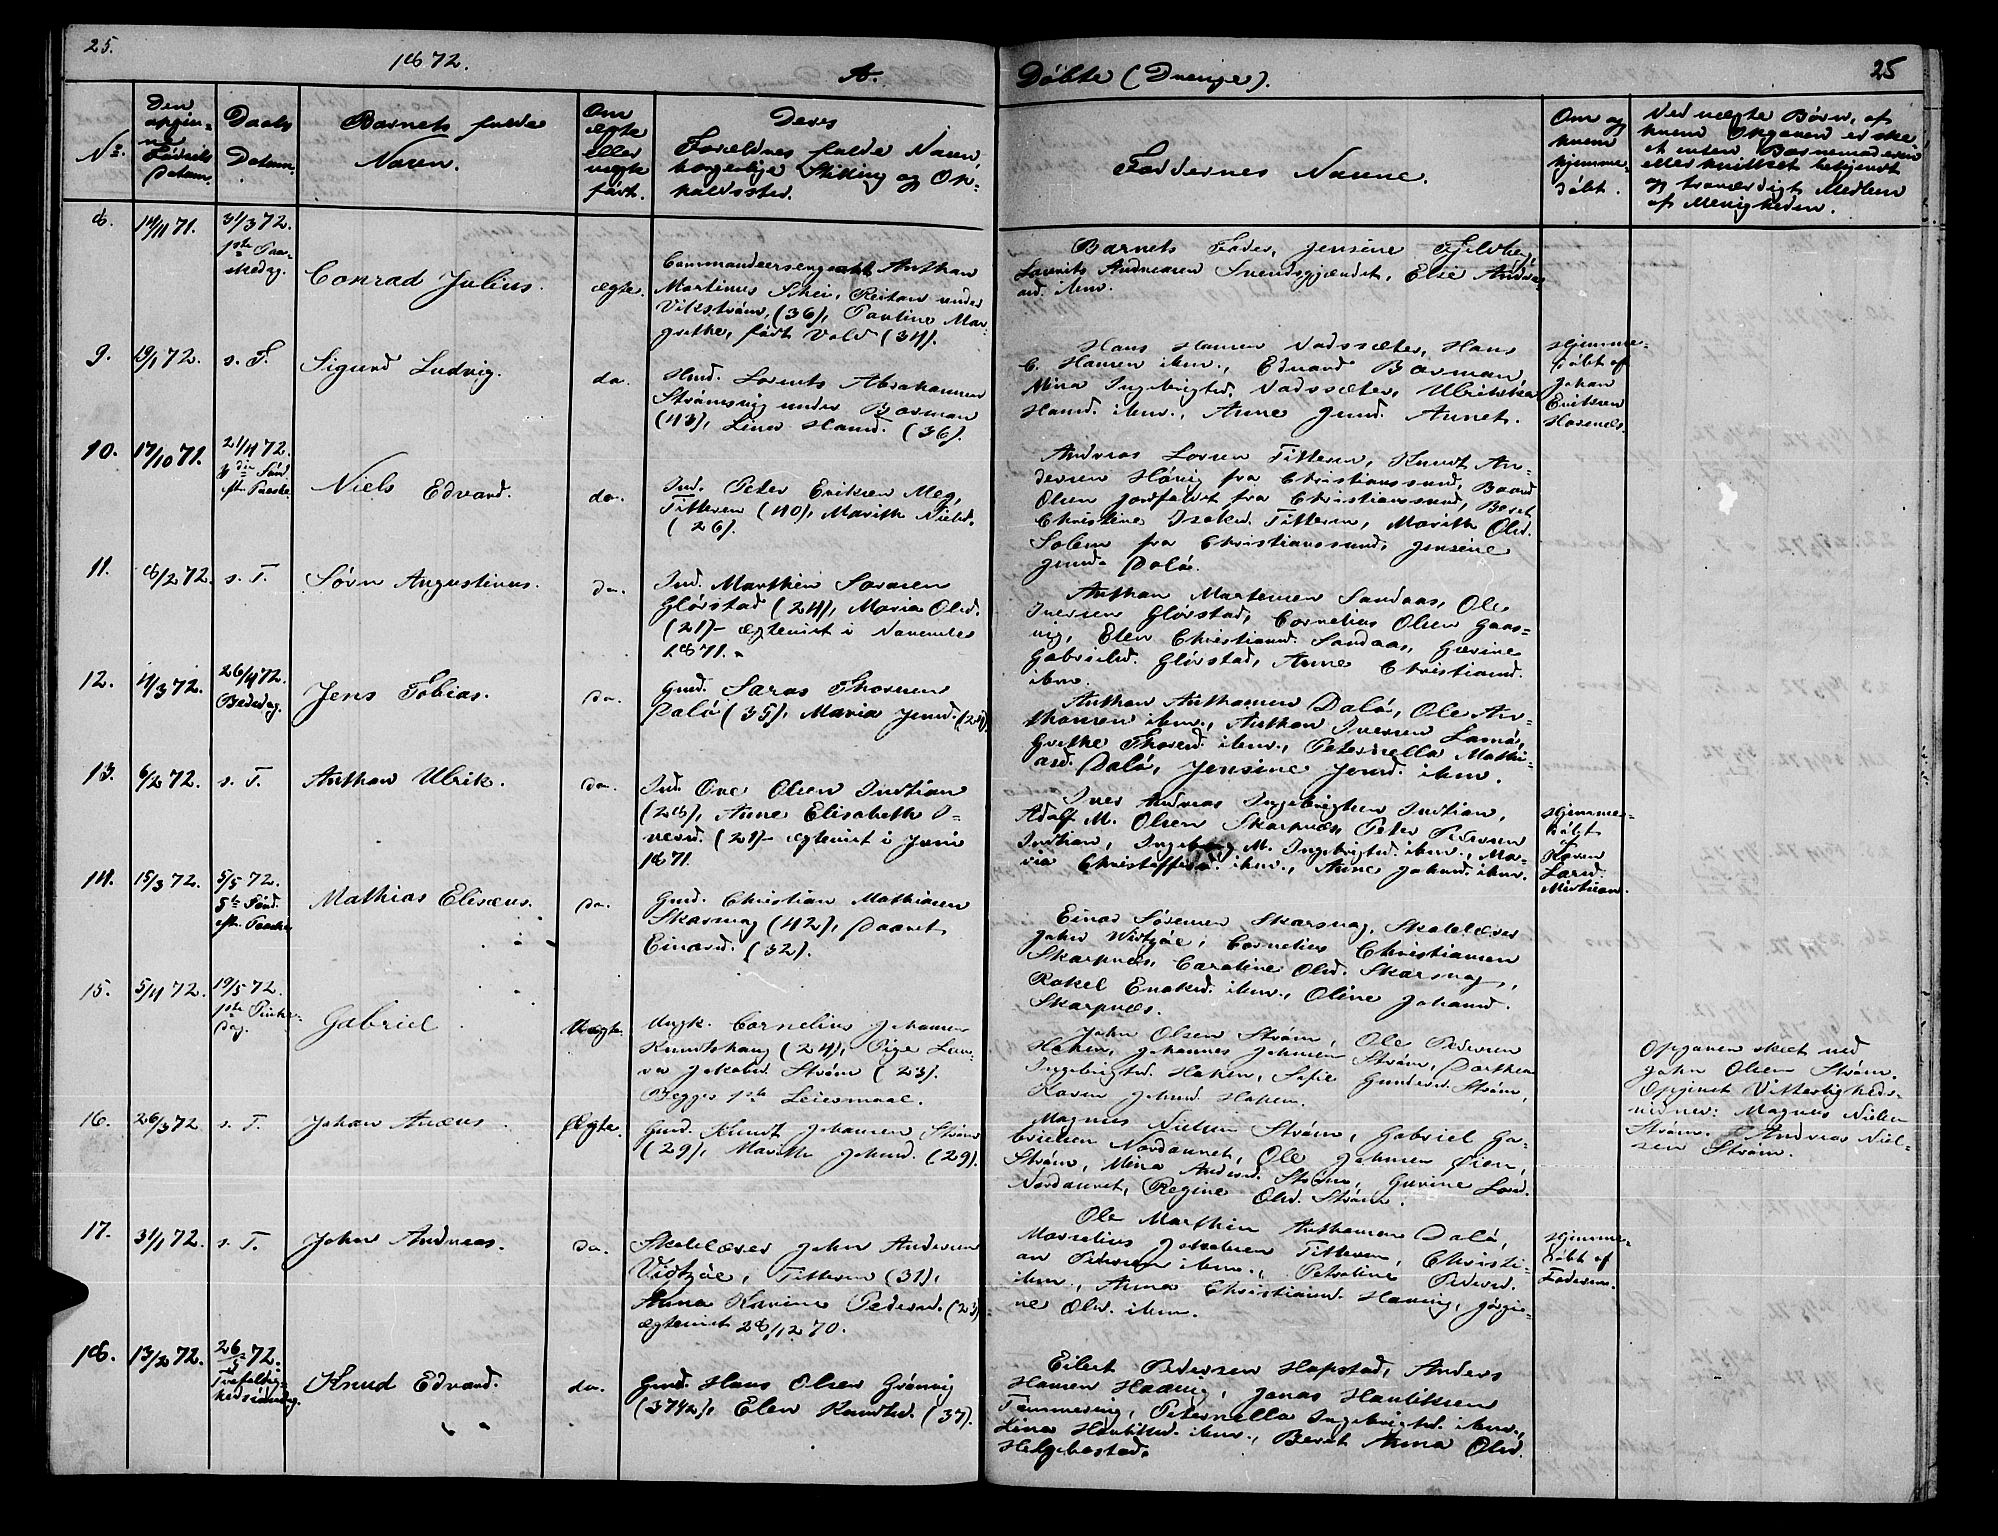 25.
1872.
A.
Døbte (Drenge).
25
No.
Den
opgiv-
ne
Fødsels
Datum.
Daabs
Datum.
Barnets fulde
Navn.
Om
ægte
eller
uægte
født.
Deres
Forældres fulde Navn,
borgerlige Stilling og Op-
holdssted.
Faddernes Navne.
Om og
hvem
hjemme-
døbt.
Ved uægte Børn, af
hvem Opgaven er ske-
et enten Barnemoderen
eller hvilket bekjendt
og troværdigt Medlem
af Menigheden.
8.
14/11 71.
31/3 72.
1ste Paa-
skedag.
Conrad Julius.
ægte.
Commandeersergeant Anthon
Martinus Schei, Reitan under
Vikstrøm, (36), Pauline Mar-
grethe, født Vold (34).
Barnets Fader, Jensine Fjeldberg,
Laurits Andreasen Svendsgjerdet, Else Andreas
asd. ibm.
9.
19/1 72.
s. T.
Sigurd Ludvig.
do.
Hmd. Lorents Abrahamsen
Strømsvig under Borman
(43), Lina Hansd. (36).
Hans Hansen Vadssæter, Hans
C. Hansen ibm., Edvard Borman,
Mina Ingebrigtsd. Vadssæter, Ulrikka
Hansd. ibm., Anne Jensd. Aunet.
Hjemme-
døbt af
Johan
Eriksen
Havnæs.
10.
17/10 71.
21/4 72.
3die Sønd.
eft. Paaske.
Niels Edvard.
do.
Ind. Peter Eriksen Meg,
Titteren (40), Marith Nielsd.
(26).
Andreas Larsen Titteren, Knudt An-
dersen Høvig fra Christianssund, Baard
Olsen Jordfaldet fra Christianssund, Beret
Christine Isaksd. Titteren, Marith Olsd.
Solem fra Christianssund, Jensine
Jensd. Dalø.
11.
8/2 72.
s. T.
Sørn Augustinus.
do.
Ind. Marthin Sørnsen
Glørstad (24), Maria Olsd.
(21) - ægteviet i November
1871.
Anthon Martensen Sandaas, Ole
Iversen Glørstad, Cornelius Olsen Gaas-
vig, Elen Christiansd. Sandaas, Gurine
Gabrielsd. Glørstad, Anne Christiansd.
ibm.
12.
4/3 72.
26/4 72.
Bededag.
Jens Tobias.
do.
Gmd. Saras Thoresen
Dalø (35), Maria Jensd. (29)
Anthon Anthonsen Dalø, Ole An-
thonsen ibm., Anthon Iversen Lamø,
Grethe Thoresd. ibm., Peternella Mathi-
asd. Dalø, Jensine Jensd. ibm.
13.
6/2 72.
s. T.
Anthon Ulrik.
do.
Ind. Ove Olsen Indtian
(28), Anne Elisabeth I-
versd. (21) - ægteviet i Juni
1871.
Iver Andreas Ingebrigtsen Indtian,
Adolf M. Olsen Skarpnæs, Peter Pedersen
Indtian, Ingeborg M. Ingebrigtsd. ibm., Ma-
ria Christoffersd. ibm., Anne Johnsd. ibm.
Hjemme-
døbt
af
Karen
Larsd.
Midtian.
14.
15/3 72.
5/5 72.
5te Sønd.
eft. Paaske.
Mathias Elisæus.
do.
Gmd. Christian Mathiasen
Skarsvag (42), Daaret
Einarsd. (32).
Einar Sørensen Skarsvag, Skolelærer
John Vidtjøe, Cornelius Christiansen
Skarpnæs, Caroline Olsd. Skarsvag,
Rakel Enoksd. ibm., Oline Johansd.
Skarpnæs.
15.
5/4 72.
19/5 72.
1ste Pintse-
dag.
Gabriel.
Uægte.
Ungk. Cornelius Johnsen
Knudtshaug (24), Pige Lau-
ra Jakobsd. Strøm (23).
Begges 1ste Leiermaal.
John Olsen Strøm, Ole Pedersen
Hopen, Johannes Johnsen Strøm, Dorthea
Ingebrigtsd. Hopen, Sofie Gundersd. Strøm,
Karen Johnsd. Hopen.
Opgaven skeet ved
John Olsen Strøm.
Opgivet Vitterligheds-
vidner: Magnus Nielsen
Strøm. Andreas Niel-
sen Strøm.
16.
26/3 72
s. T.
Johan Anæus.
Ægte.
Gmd. Knudt Johnsen Strøm
(29), Marith Johnsd. (29).
Magnus Nielsen Strøm, Gabriel Ga-
brielsen Nordaunet, Ole Johnsen Øien,
Strøm, Mina Andersd. Strøm, Gurine Larsd.
Nordaunet, Regine Olsd. Strøm.
17.
31/1 72.
s. T.
John Andreas.
do.
Skolelærer John Andersen
Vidtjøe, Titteren (31),
Anna Karine Pedersd. (23)
ægteviet 28/12 70.
Ole Marthin Anthonsen Dalø,
Marselius Jakobsen Titteren, Christi-
an Pedersen ibm., Petroline Pedersd.
ibm., Anna Christiansd. Havnvig, Jørgi-
ne Olsd. ibm.
Hjemme-
døbt af
Faderen.
18.
13/2 72.
26/5 72.
Trefoldig-
hedssøndag.
Knud Edvard.
do.
Gmd. Hans Olsen Grønvig
(37 1/2), Elen Knudtsd. (37).
Eilert Pedersen Hopstad, Anders
Hansen Havnvig, Jonas Hanliksen
Tømmervig, Peternella Ingebrigtsd. ibm.,
Lina Hanliksd. ibm., Beret Anna Olsd.
Helgebostad.